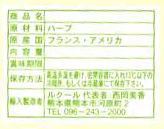 商品名
原材料 ハーブ
原産国 フランス・アメリカ
内容量
賞味期限
保存方法 高温多湿を避け、密閉容器に入れ15℃以下の冷暗所、もしくは冷蔵庫にて保存下さい。
輸入製造者 ルクール 代表者 西岡美香
熊本県熊本市河原町2
TEL 096-243-2000